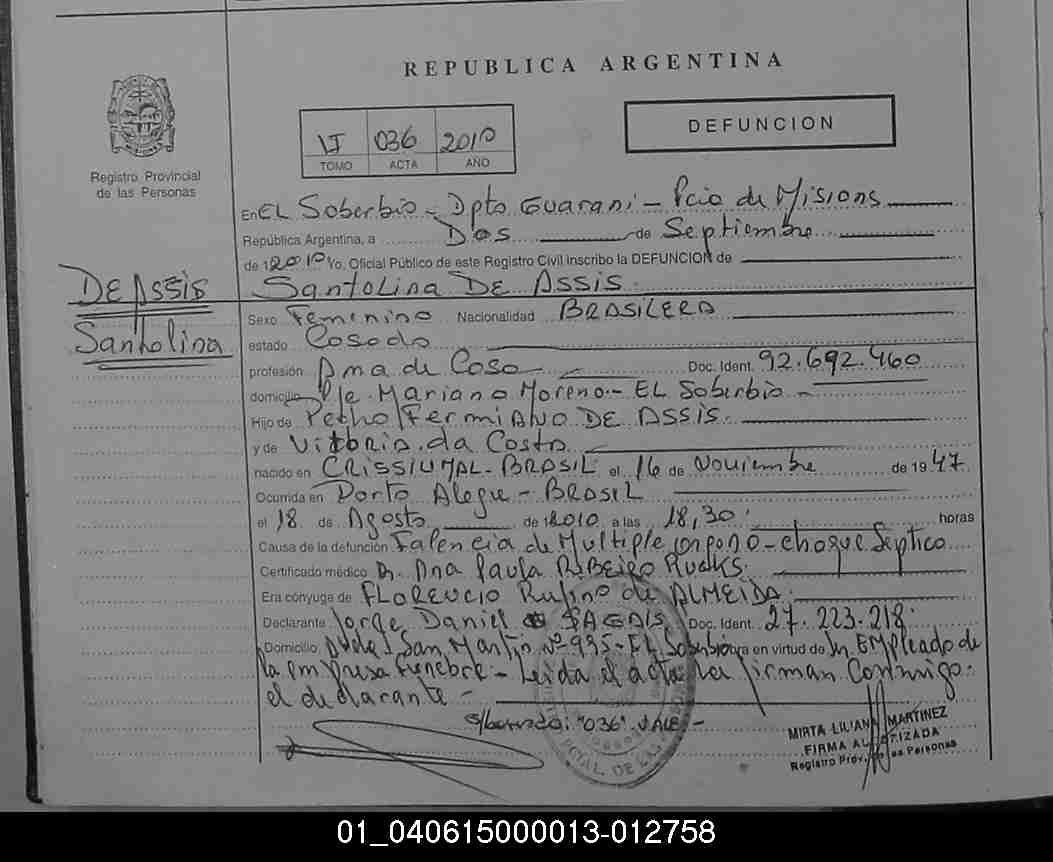 REPUBLICA ARGENTINA
DEFUNCION
036 2010
TOMO ACTA AÑO
Registro Provincial
de las Personas
En EL Soberbio - Dpto Guarani - Pcia de Misions
República Argentina, a Dos de Septiembre
de 12010 Yo, Oficial Público de este Registro Civil inscribo la DEFUNCION de
DE ASSIS
Santolina
Santolina DE ASSIS
Sexo Femenino Nacionalidad BRASILERA
estado Casado
profesión Ama de Casa Doc. Ident. 92.692.460
domicilio Mariano Moreno - EL Soberbio -
Hijo de Pedho Fermiano DE ASSIS
y de Vitoria da Costa
nacido en CRISSIUMAL - BRASIL el 16 de Noviembre de 1947
Ocurrida en Porto Alegre - BRASIL
el 18 de Agosto de 2010 a las 18,30 horas
Causa de la defunción Falencia de Multiple - choque Septico
Certificado médico Dr. Ana Paula RIBEIRO
Era cónyuge de FLORENCIO Rufino de ALMEIDA
Declarante Jorge Daniel Doc. Ident. 27.223.218
Domicilio Avda San Martin Nº 935 - EL Soberbio obra en virtud de Empleado de
la empresa funebre - Leida el acta la firman Conmigo
el declarante -
s/borrado: "036" VALE -
MIRTA LILIANA MARTINEZ
FIRMA AUTORIZADA
Registro Prov. de las Personas
01_040615000013-012758